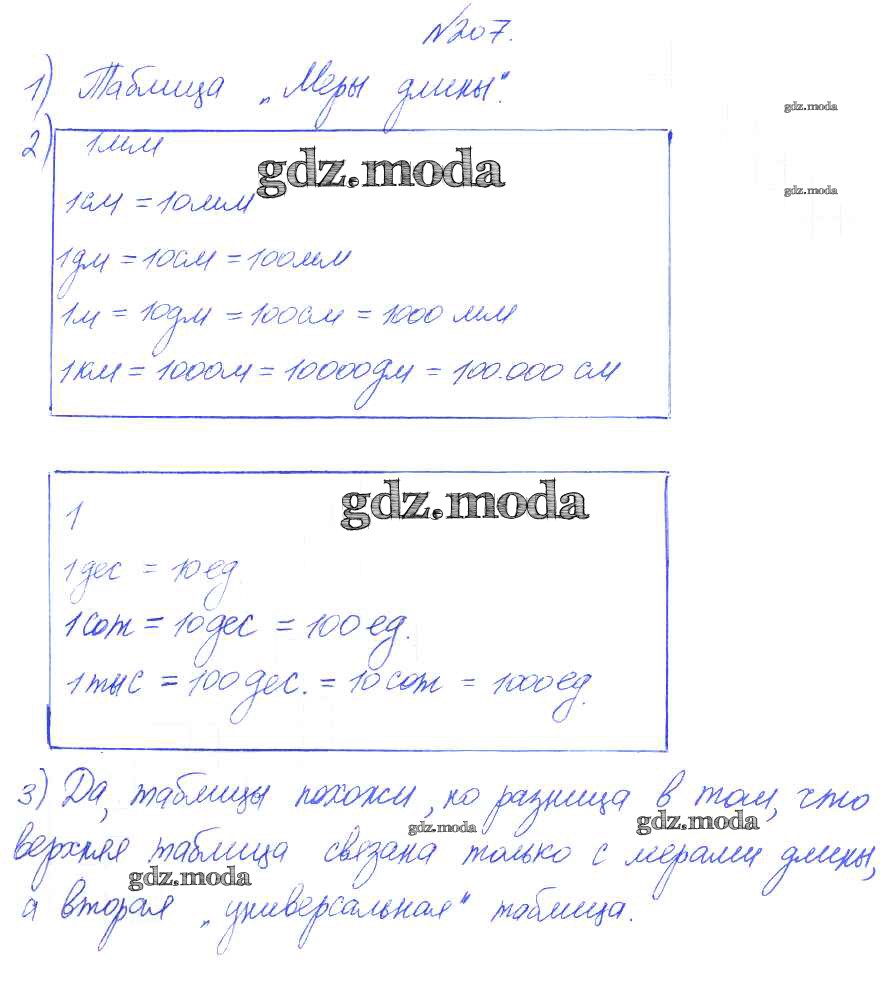 №207.
1) Таблица „Меры длины".
gdz.moda
2) 1мм
gdz.moda
gdz.moda
1см = 10мм
1дм = 10см = 100мм
1м = 10дм = 100см = 1000 мм
1км = 1000м = 10000дм = 100.000 см
gdz.moda
1
1дес = 10ед.
1сот = 10дес = 100ед.
1тыс = 100дес. = 10сот = 1000ед.
3) Да, таблицы похожи, но разница в том, что
gdz.moda
gdz.moda
верхняя таблица связана только с мерами длины,
gdz.moda
а вторая „универсальная" таблица.